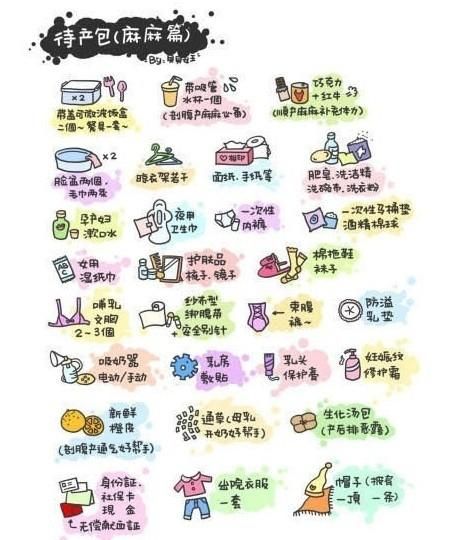 待产包(麻麻篇)
By:
×2
带盖可微波饭盒
二個~餐具一套~
带吸管
水杯一個
(剖腹产麻麻必备)
巧克力
+红牛
(顺产麻麻补充体力)
×2
脸盆两個,
毛巾两条
晾衣架若干
相印
面纸、手纸等
肥皂、洗洁精
洗碗布、洗衣粉
孕产妇
漱口水
夜用
卫生巾
一次性
内裤
一次性马桶垫
酒精棉球
ABC
女用
湿纸巾
护肤品
梳子、镜子
棉拖鞋
袜子
哺乳
文胸
2~3個
纱布型
绑腹带
+安全别针
束腹
裤~
防溢
乳垫
吸奶器
电动/手动
乳房
敷贴
乳头
保护膏
妊娠纹
修护霜
新鲜
橙皮
(剖腹产通气好帮手)
通草(母乳
开奶好帮手)
生化汤包
(产后排恶露)
身份証、
社保卡
現 金
无偿献血証
出院衣服
一套
帽子(披肩
一顶 一条)